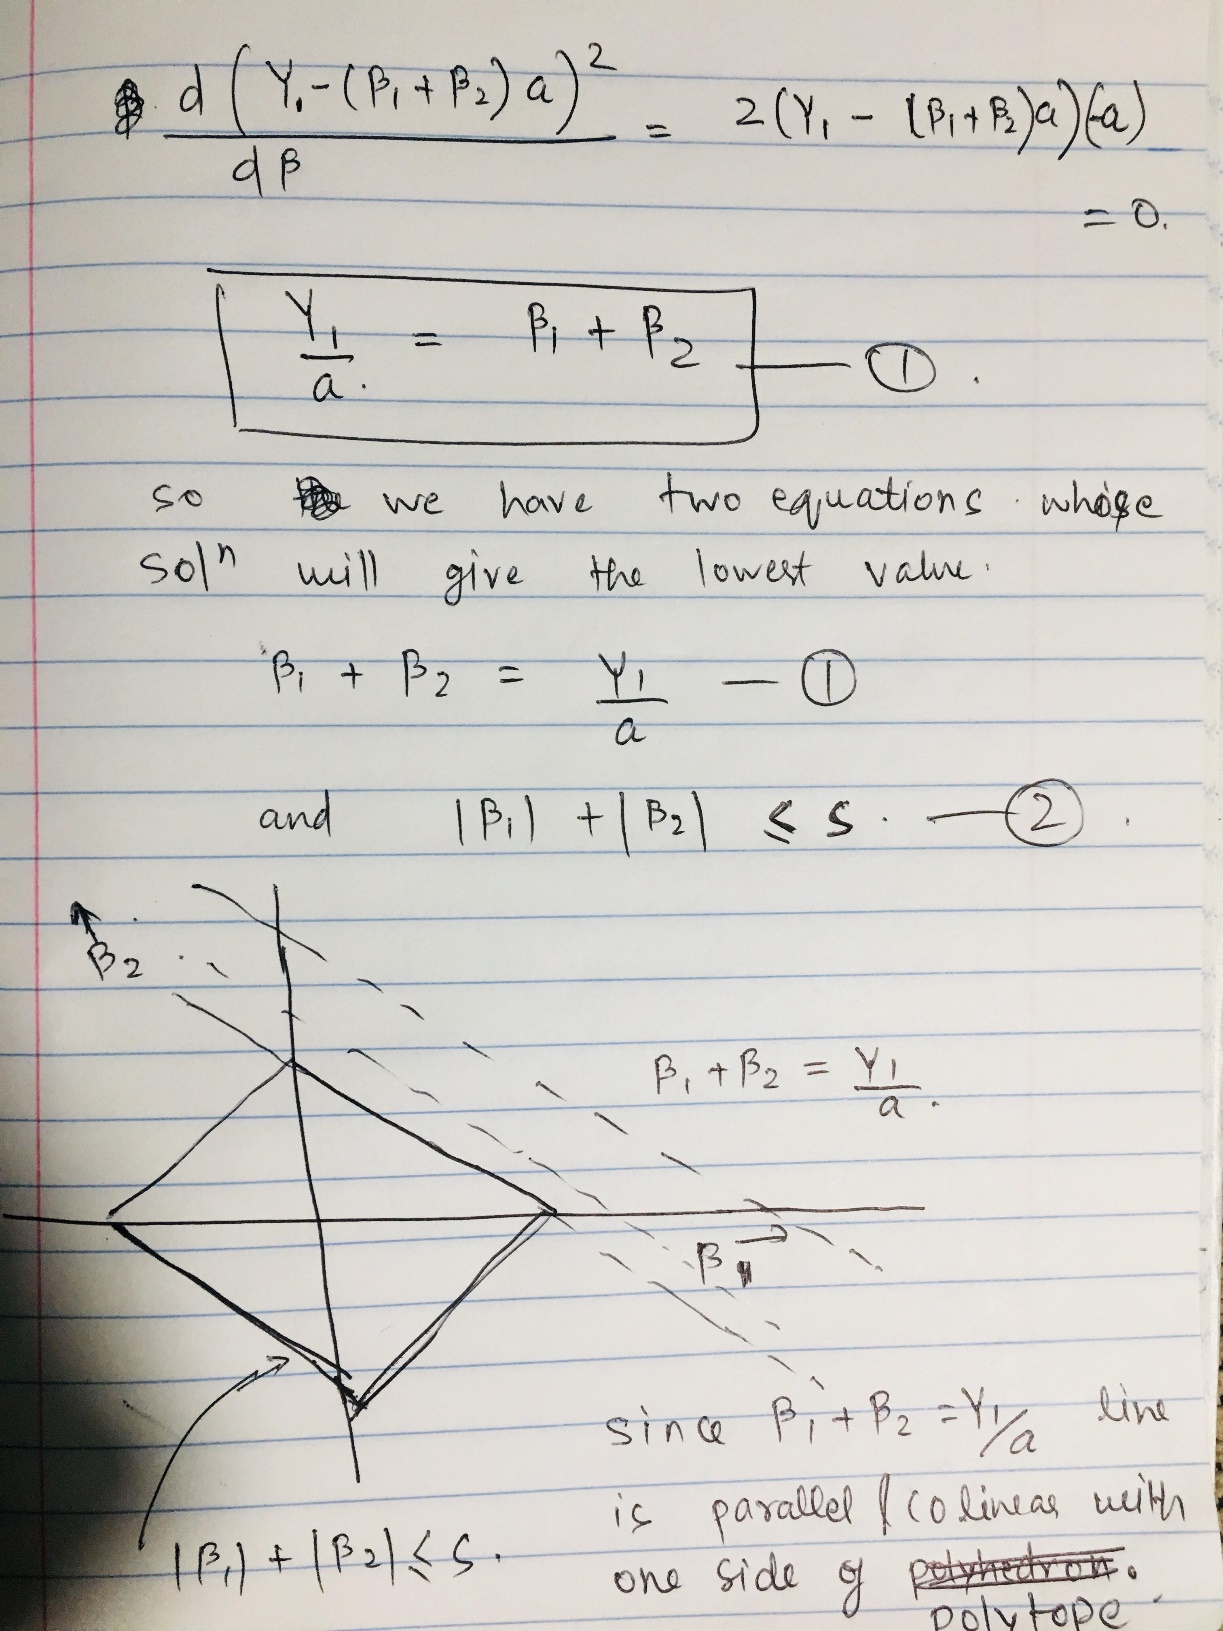 d (Y₁-(β₁+β₂)a)² = 2(Y₁ - (β₁+β₂)a)(-a)
dβ
= 0.
Y₁ = β₁ + β₂ — ①.
a.
so we have two equations whose
solⁿ will give the lowest value.
β₁ + β₂ = Y₁ — ①
a
and |β₁| + |β₂| ≤ s. — ②.
β₂
β₁ + β₂ = Y₁
a.
β₁
since β₁ + β₂ = Y₁/a line
is parallel / colinear with
|β₁| + |β₂| ≤ s.
one side of polyhedron.
polytope